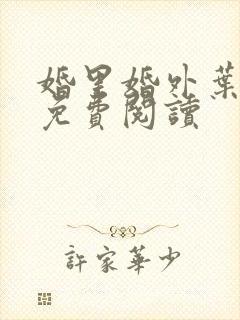 婚里婚外葉
免費閱讀
許家華少